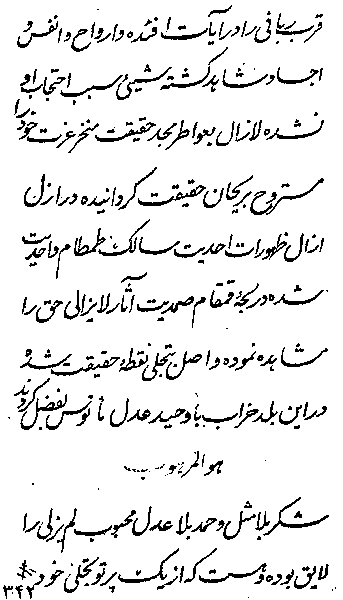 قرب ربانی را در آیات افئده و ارواح و انفس و
اجساد مشاهد گشته شیئی سبب احتجاب او
نشده لازال بعواطر مجد حقیقت متحر عزت خود را
مستروح بریحان حقیقت گردانیده در ازل
ازال ظهورات احدیت سالک طمطام واحدیت
شده در لجهٔ قمقام صمدیت آثار لایزالی حق را
مشاهده نموده واصل بتجلی نقطهٔ حقیقت شد و
در این بلد خراب با وحید عدل مأنوس بفضل گردند
هو المحبوب
شکر بلا مثل و حمد بلا عدل محبوب لم یزلی را
لایق بوده و هست که از یک پرتو تجلی خود
۳۴۲